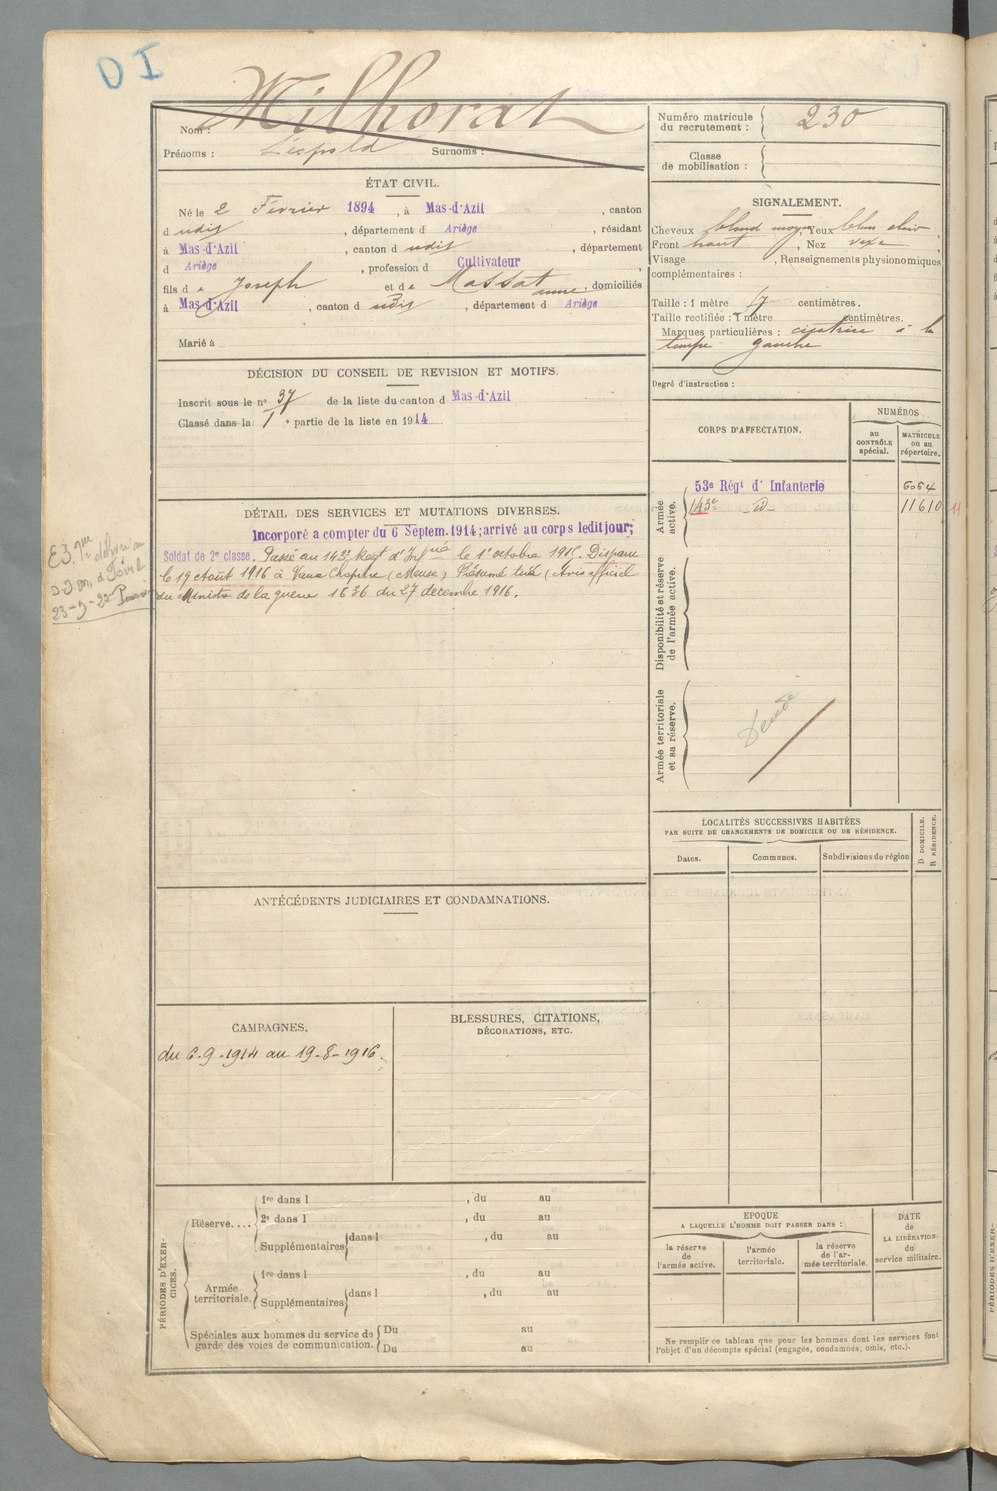 DI
Nom : Milhorat
Prénoms : Léopold Surnoms :
Numéro matricule du recrutement : 230
Classe de mobilisation :
ÉTAT CIVIL.
Né le 2 Février 1894, à Mas-d'Azil, canton
d udit, département d Ariège, résidant
à Mas-d'Azil, canton d udit, département
d Ariège, profession d Cultivateur
fils d e Joseph et d e Massat anne, domiciliés
à Mas-d'Azil, canton d udit, département d Ariège
Marié à
DÉCISION DU CONSEIL DE REVISION ET MOTIFS.
Inscrit sous le nº 37 de la liste du canton d Mas-d'Azil
Classé dans la 1e partie de la liste en 1914
DÉTAIL DES SERVICES ET MUTATIONS DIVERSES.
Incorporé a compter du 6 Septem. 1914; arrivé au corps ledit jour;
Soldat de 2e classe. Passé au 143e Regt d'Infrie le 1er octobre 1915. Disparu
le 19 Août 1916 à Vaux Chapitre (Meuse) Présumé tué (Avis officiel
du Ministre de la guerre 1636 du 27 décembre 1916.
23-9-22
ANTÉCÉDENTS JUDICIAIRES ET CONDAMNATIONS.
CAMPAGNES.
du 6-9-1914 au 19-8-1916.
BLESSURES, CITATIONS,
DÉCORATIONS, ETC.
PÉRIODES D'EXERCICES.
Réserve....
1re dans l , du au
2e dans l , du au
Supplémentaires dans l , du au
Armée territoriale.
1re dans l , du au
Supplémentaires dans l , du au
Spéciales aux hommes du service de Du au
garde des voies de communication. Du au
SIGNALEMENT.
Cheveux blond moyen, Yeux bleu clair,
Front haut, Nez vexe
Visage , Renseignements physionomiques
complémentaires :
Taille : 1 mètre 67 centimètres.
Taille rectifiée : 1 mètre centimètres.
Marques particulières : cicatrice à la
tempe gauche
Degré d'instruction :
CORPS D'AFFECTATION.
NUMÉROS
au CONTRÔLE spécial.
MATRICULE ou au répertoire.
Armée active.
53e Régt d'Infanterie 6064
143e d- 11610 11
Disponibilité et réserve de l'armée active.
Armée territoriale et sa réserve.
LOCALITÉS SUCCESSIVES HABITÉES
PAR SUITE DE CHANGEMENTS DE DOMICILE OU DE RÉSIDENCE.
Dates. Communes. Subdivisions de région
D DOMICILE.
R RÉSIDENCE.
EPOQUE
A LAQUELLE L'HOMME DOIT PASSER DANS :
la réserve de l'armée active.
l'armée territoriale.
la réserve de l'armée territoriale.
DATE de LA LIBÉRATION du service militaire.
Ne remplir ce tableau que pour les hommes dont les services font
l'objet d'un décompte spécial (engagés, condamnés, omis, etc.).